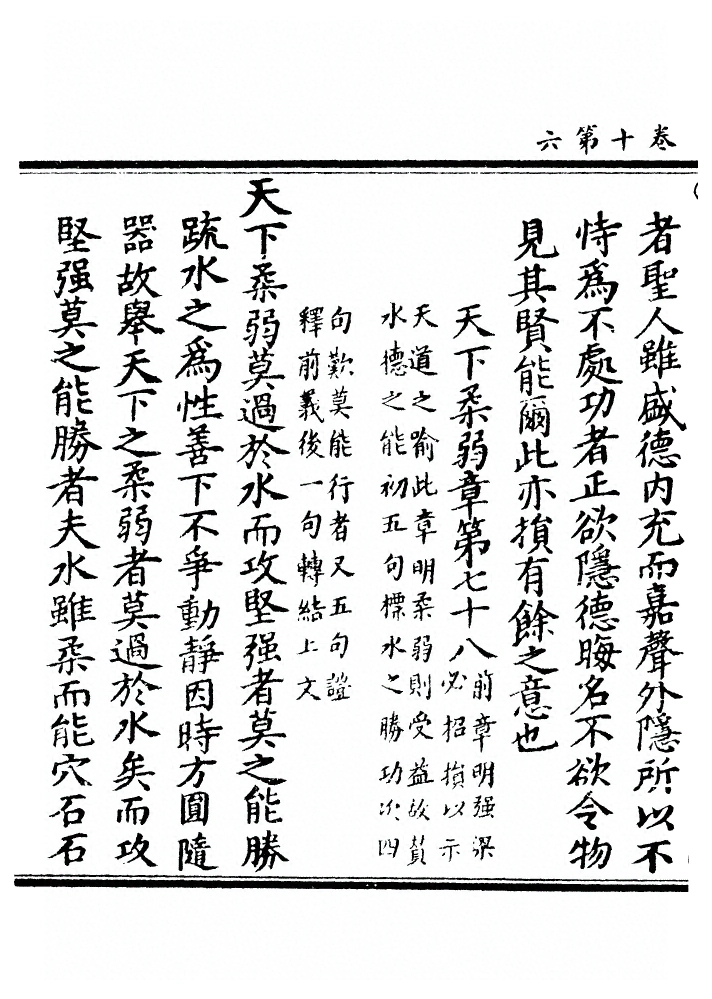 卷十第六
者聖人雖盛德内充而嘉聲外隱所以不
恃爲不處功者正欲隱德晦名不欲令物
見其賢能爾此亦損有餘之意也
天下柔弱章第七十八
前章明强梁
必招損以示
天道之喻此章明柔弱則受益故賛
水德之能初五句標水之勝功次四
句歎莫能行者又五句證
釋前義後一句轉結上文
天下柔弱莫過於水而攻堅强者莫之能勝
疏水之爲性善下不爭動靜因時方圓隨
器故舉天下之柔弱者莫過於水矣而攻
堅强莫之能勝者夫水雖柔而能穴石石